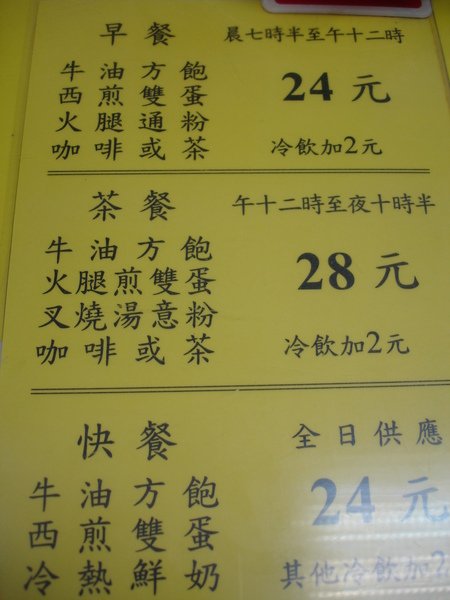 早餐 晨七時半至午十二時
牛油方飽
西煎雙蛋 24元
火腿通粉
咖啡或茶 冷飲加2元
茶餐 午十二時至夜十時半
牛油方飽
火腿煎雙蛋 28元
叉燒湯意粉
咖啡或茶 冷飲加2元
快餐 全日供應
牛油方飽 24元
西煎雙蛋
冷熱鮮奶 其他冷飲加2